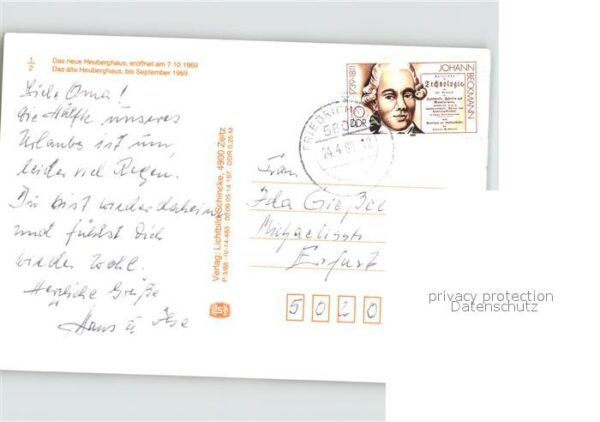 1
2
Das neue Heuberghaus, eröffnet am 7.10.1969
Das alte Heuberghaus, bis September 1969
Liebe Oma!
Die Hälfte unseres
Urlaubes ist um,
leider viel Regen.
Du bist wieder daheim
und fühlst Dich
wieder wohl.
Herzliche Grüße
Hans u. Ilse
Verlag: Lichtbild Schincke, 4900 Zeitz
P 3/88 · IV-14-483 · 06 09 05 14 167 · DDR 0,25 M
FRIEDRI
580
24.4.89.12
1739-1811
JOHANN
BECKMANN
Technologie
10
DDR
Frau
Ida
Michaelisstr
Erfurt
5020
privacy protection
Datenschutz